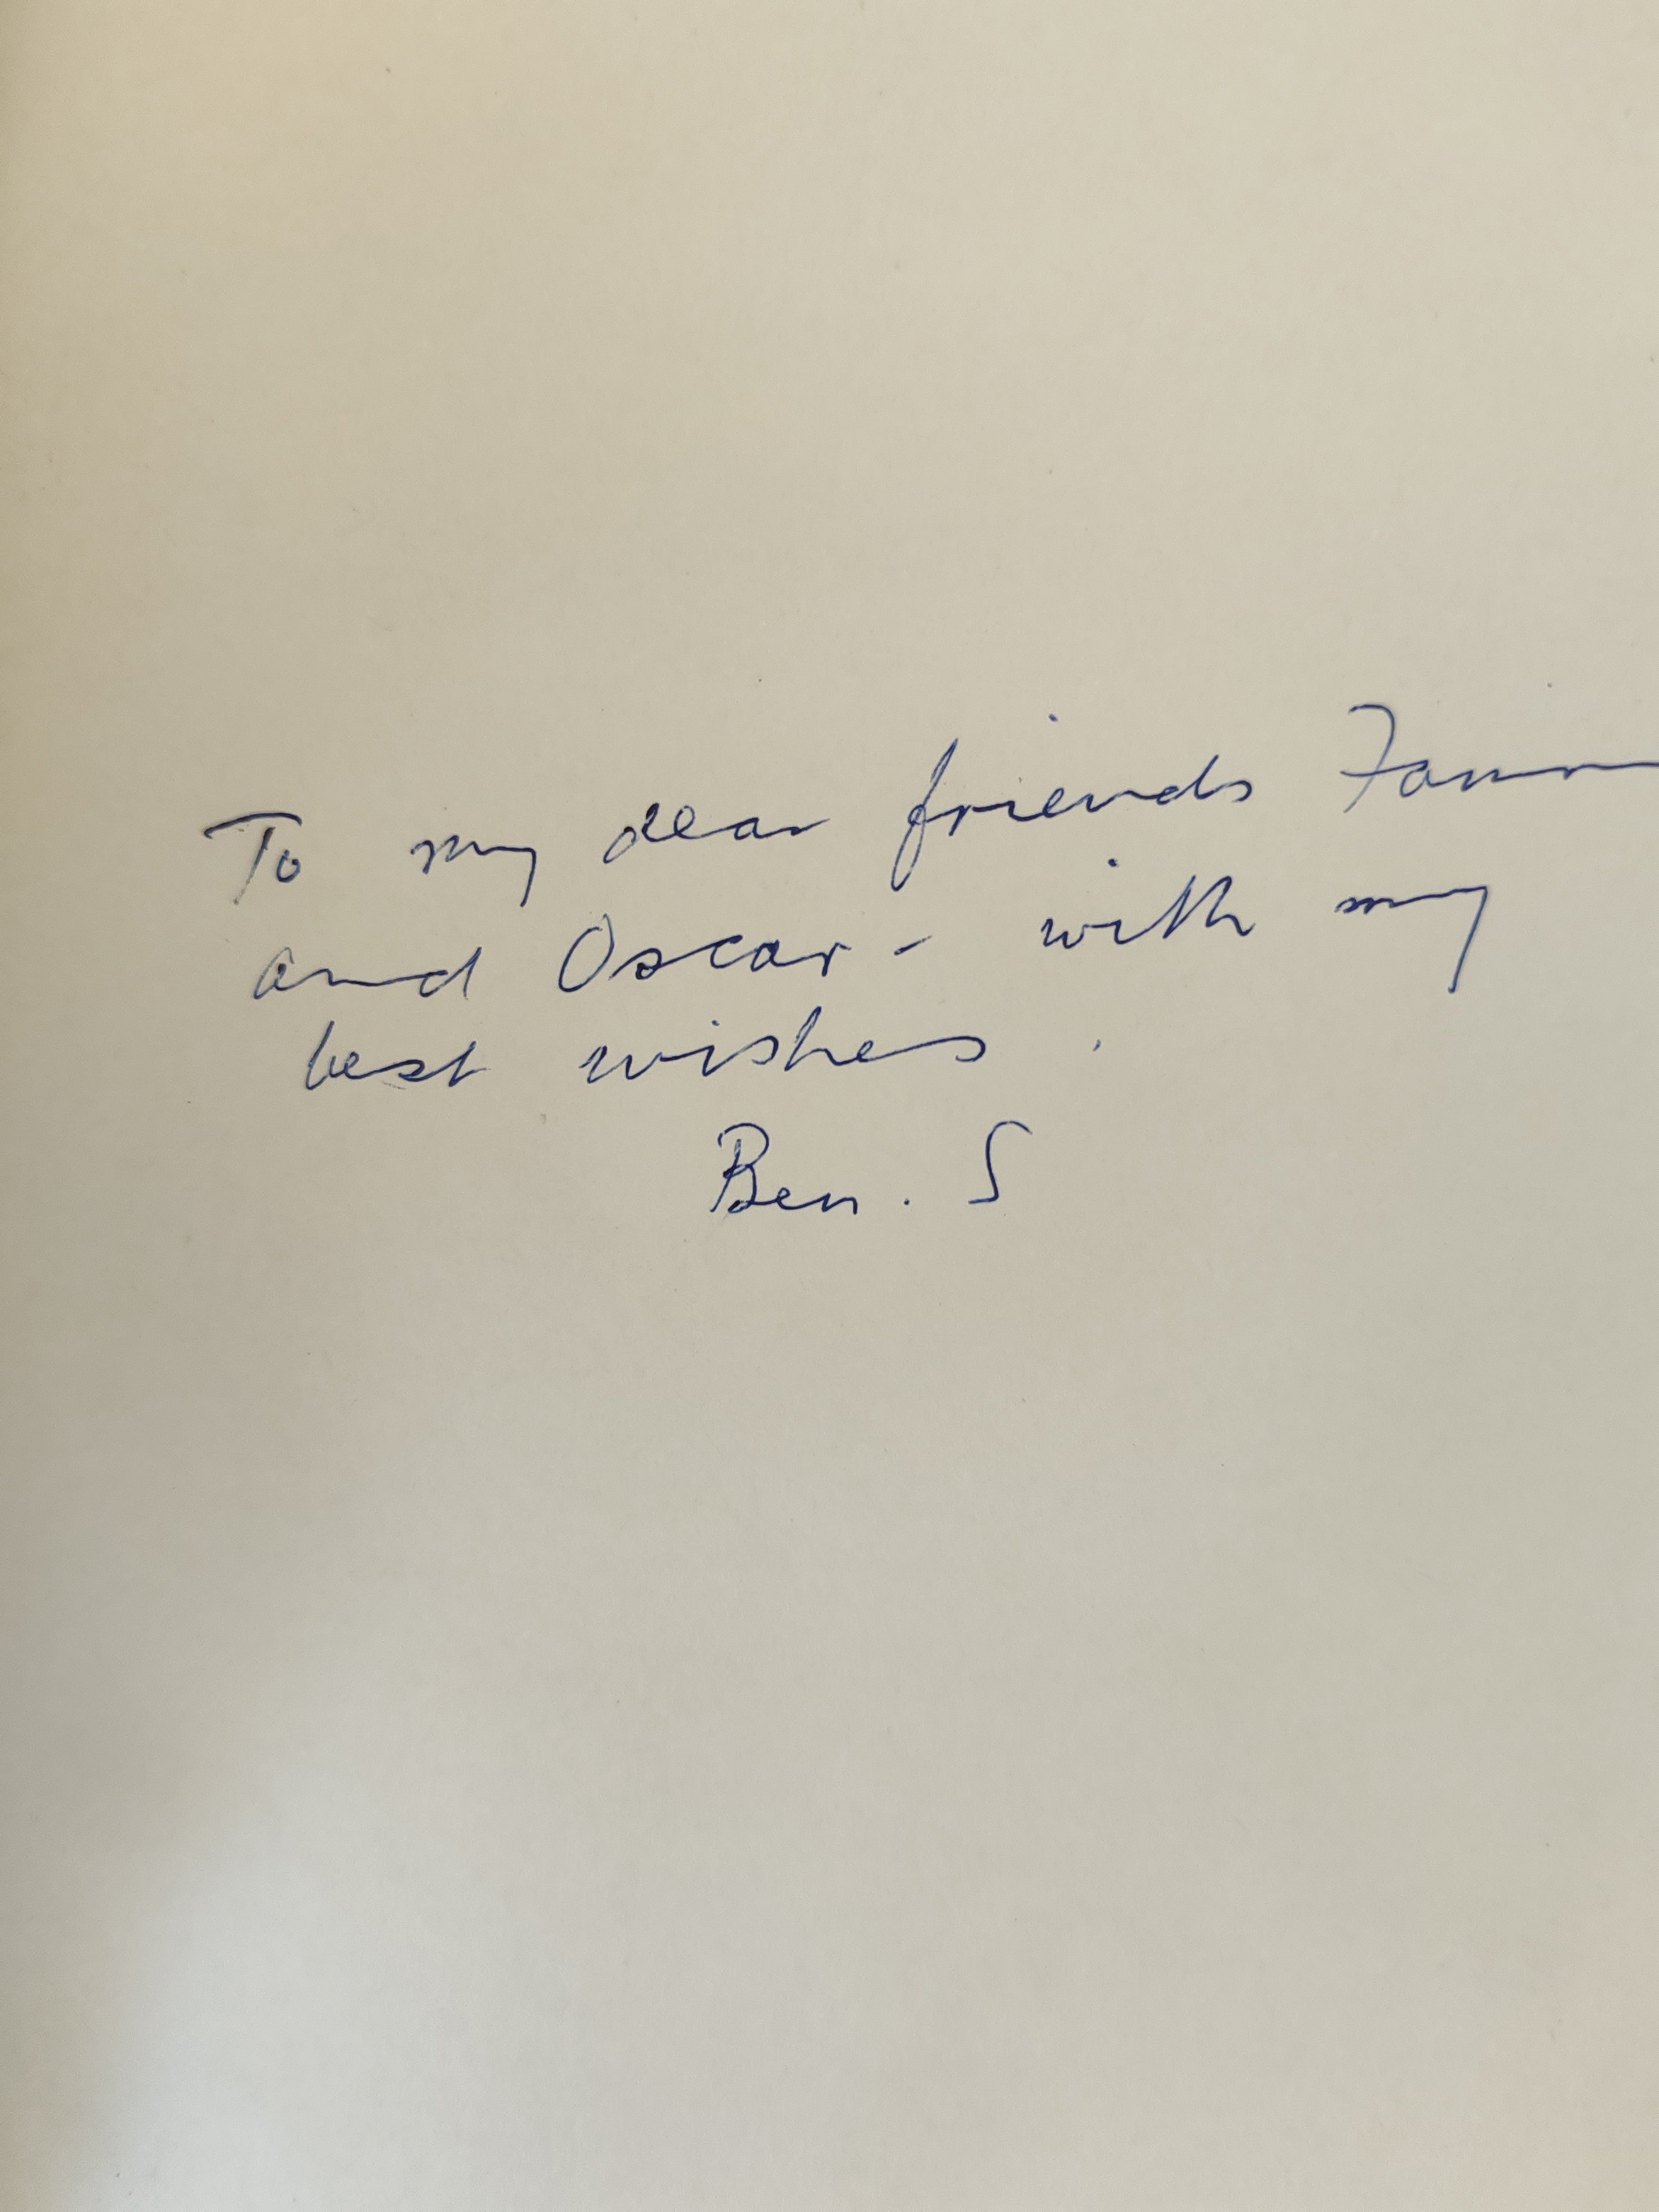 To my dear friends
and Oscar - with my
best wishes.
Ben. S